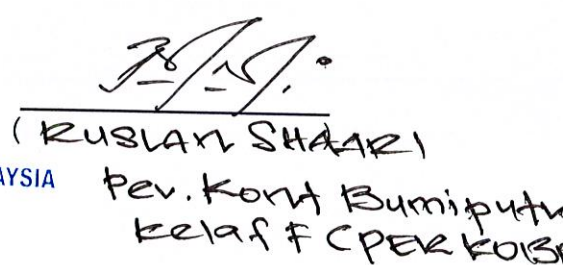 ( RUSLAN SHAARI
AYSIA
Pev. Kont Bumiput
Kelaf F CPER KOB